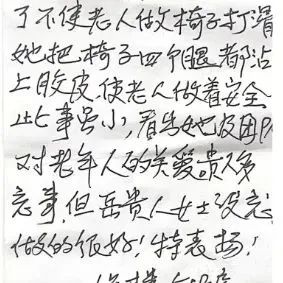 了不使老人做椅子打滑
她把椅子四个腿都沾
上胶皮,使老人做着安全
此事虽小,看出她及团队
对老年人的关爱贵人多
忘事,但岳贵人女士没忘
做的很好!特表扬!